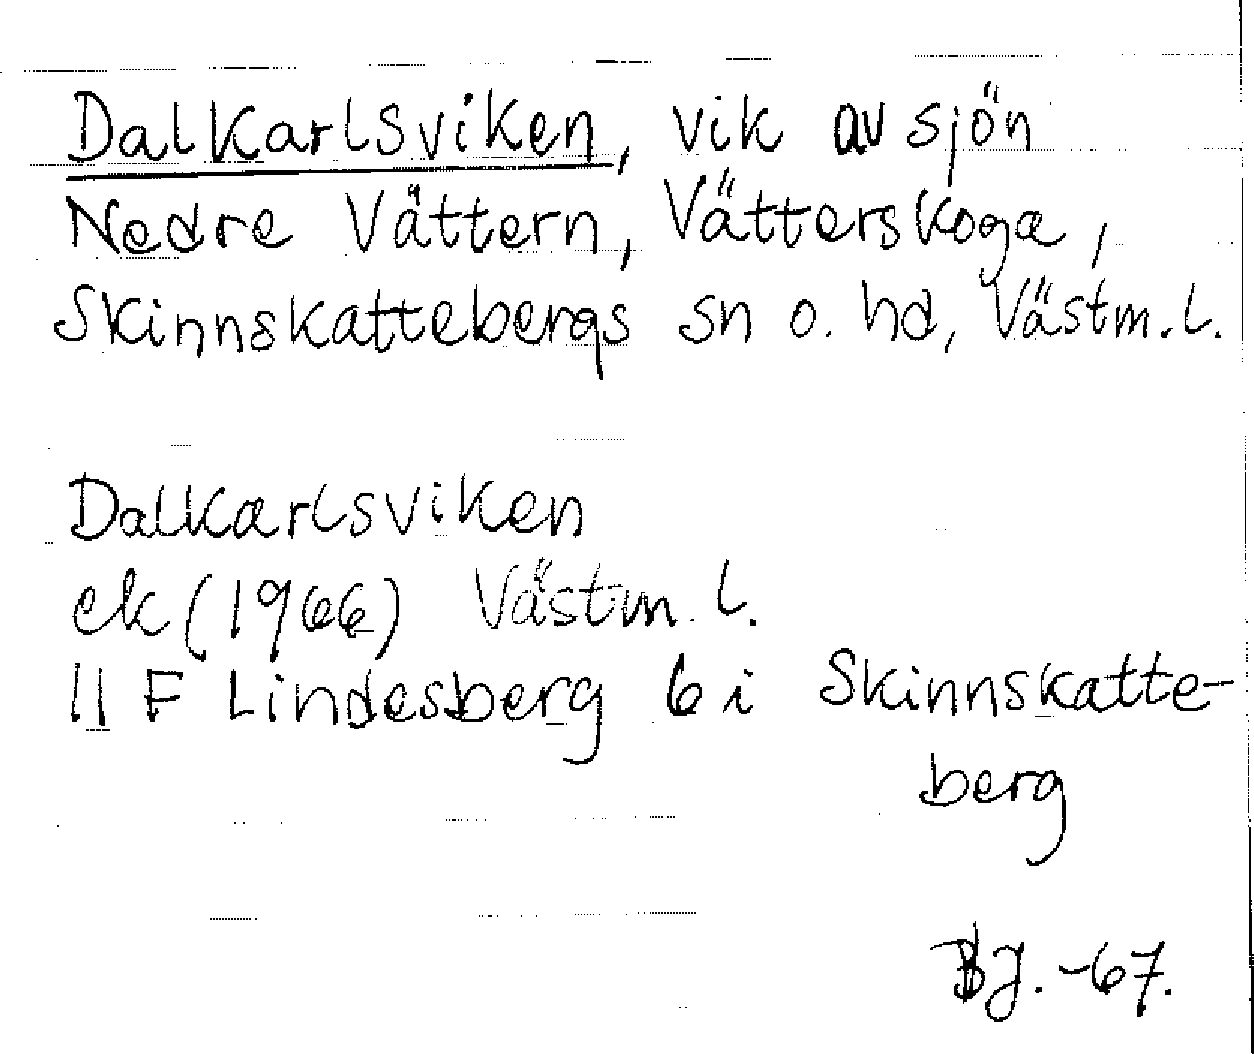 Dalkarlsviken, vik av sjön
Nedre Vättern, Vätterskoga,
Skinnskattebergs sn o. hd, Västm. l.
Dalkarlsviken
ek (1966) Västm. l.
11 F Lindesberg 6 i Skinnskatte-
berg
BJ. -67.